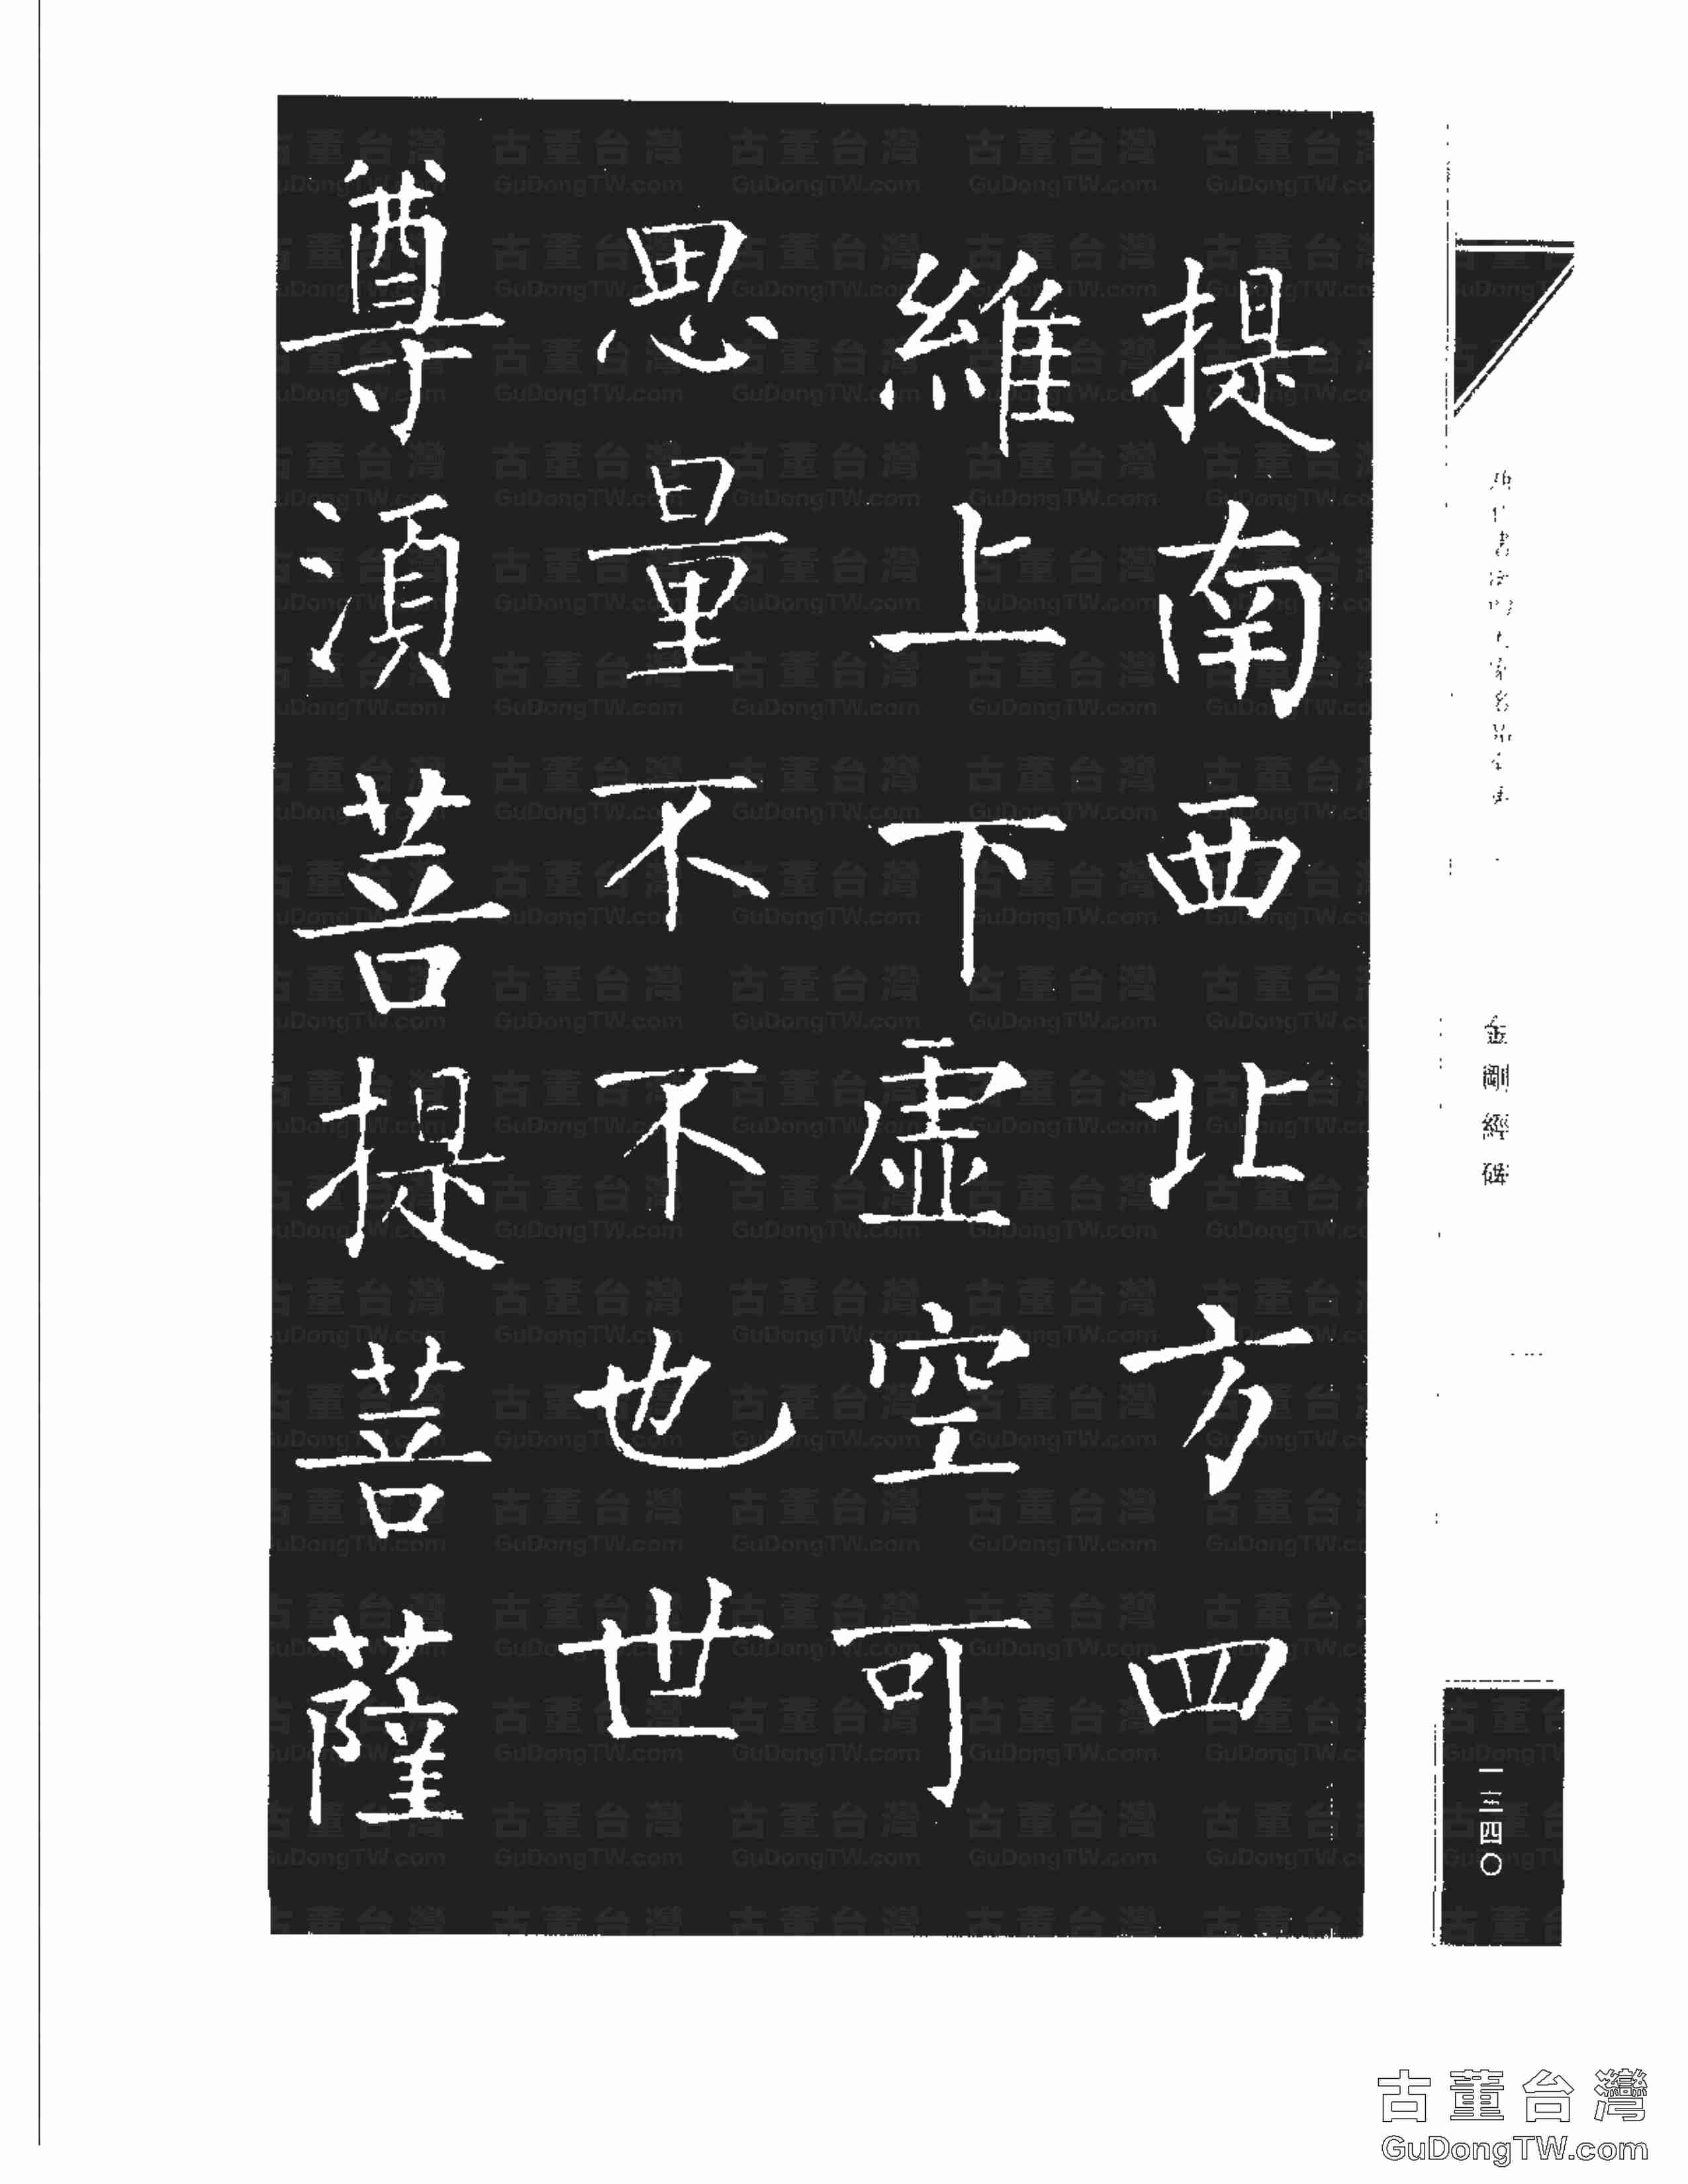 提南西北方四
維上下虛空可
思量不不也世
尊須菩提菩薩
金剛經碑
一三四〇
古董台灣
GuDongTW.com